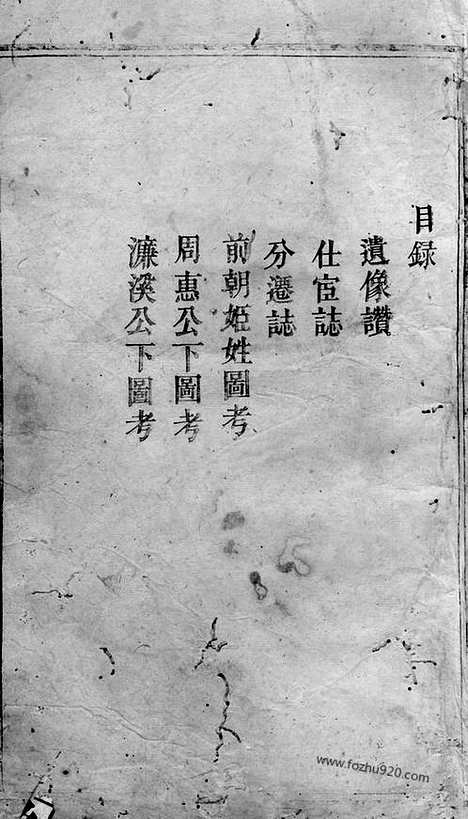 目録
遺像讚
仕宦誌
分遷誌
前朝姫姓圖考
周惠公下圖考
濂溪公下圖考
www.fozhu920.com